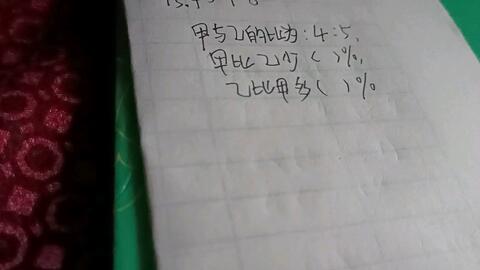 甲与乙的比为:4:5,
甲比乙少( )%,
乙比甲多( )%